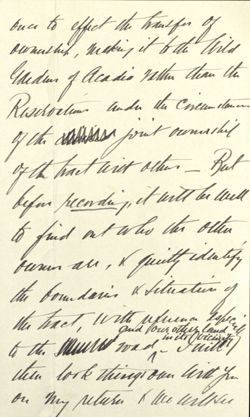 once to effect the transfer of
ownership, making it to the Wild
Gardens of Acadia rather than the
Reservations under the circumstances
of the joint ownership
of the tract with others — But
before recording, it will be well
to find out who the other
owners are, & quietly identify
the boundaries & situation of
the tract, with reference
and our other land
to the road, in its vicinity — I will
then look things over with you
on my return & we will see